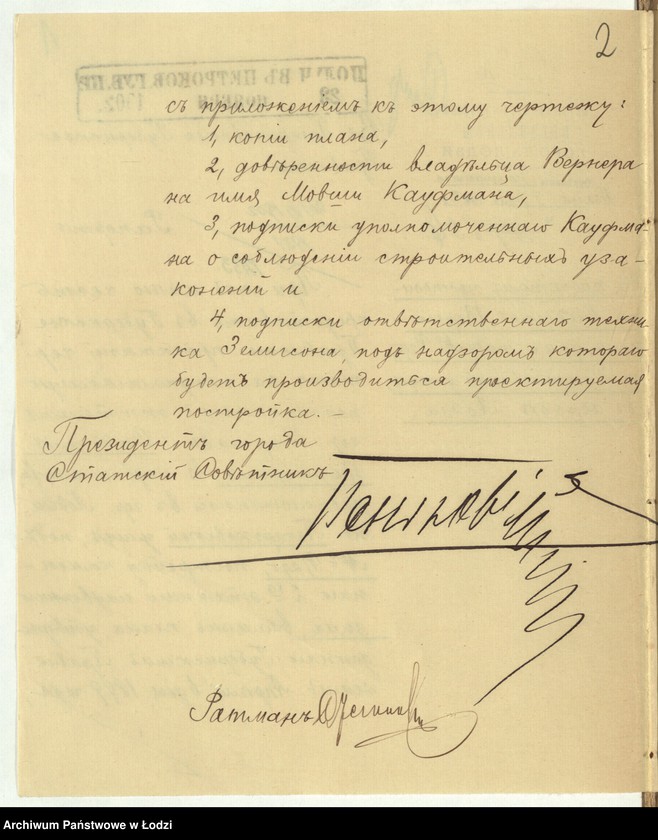 2
съ приложеніемъ къ этому чертежу:
1, копіи плана,
2, довѣренности владѣльца Вернера
на имя Мовши Кауфмана,
3, подписки уполномоченнаго Кауфма-
на о соблюденіи строительныхъ уза-
коненій и
4, подписки отвѣтственнаго техни-
ка Зелигсона, подъ надзоромъ котораго
будетъ производиться проектируемая
постройка. —
Президентъ города
Статскій Совѣтникъ
Ратманъ
Archiwum Państwowe w Łodzi